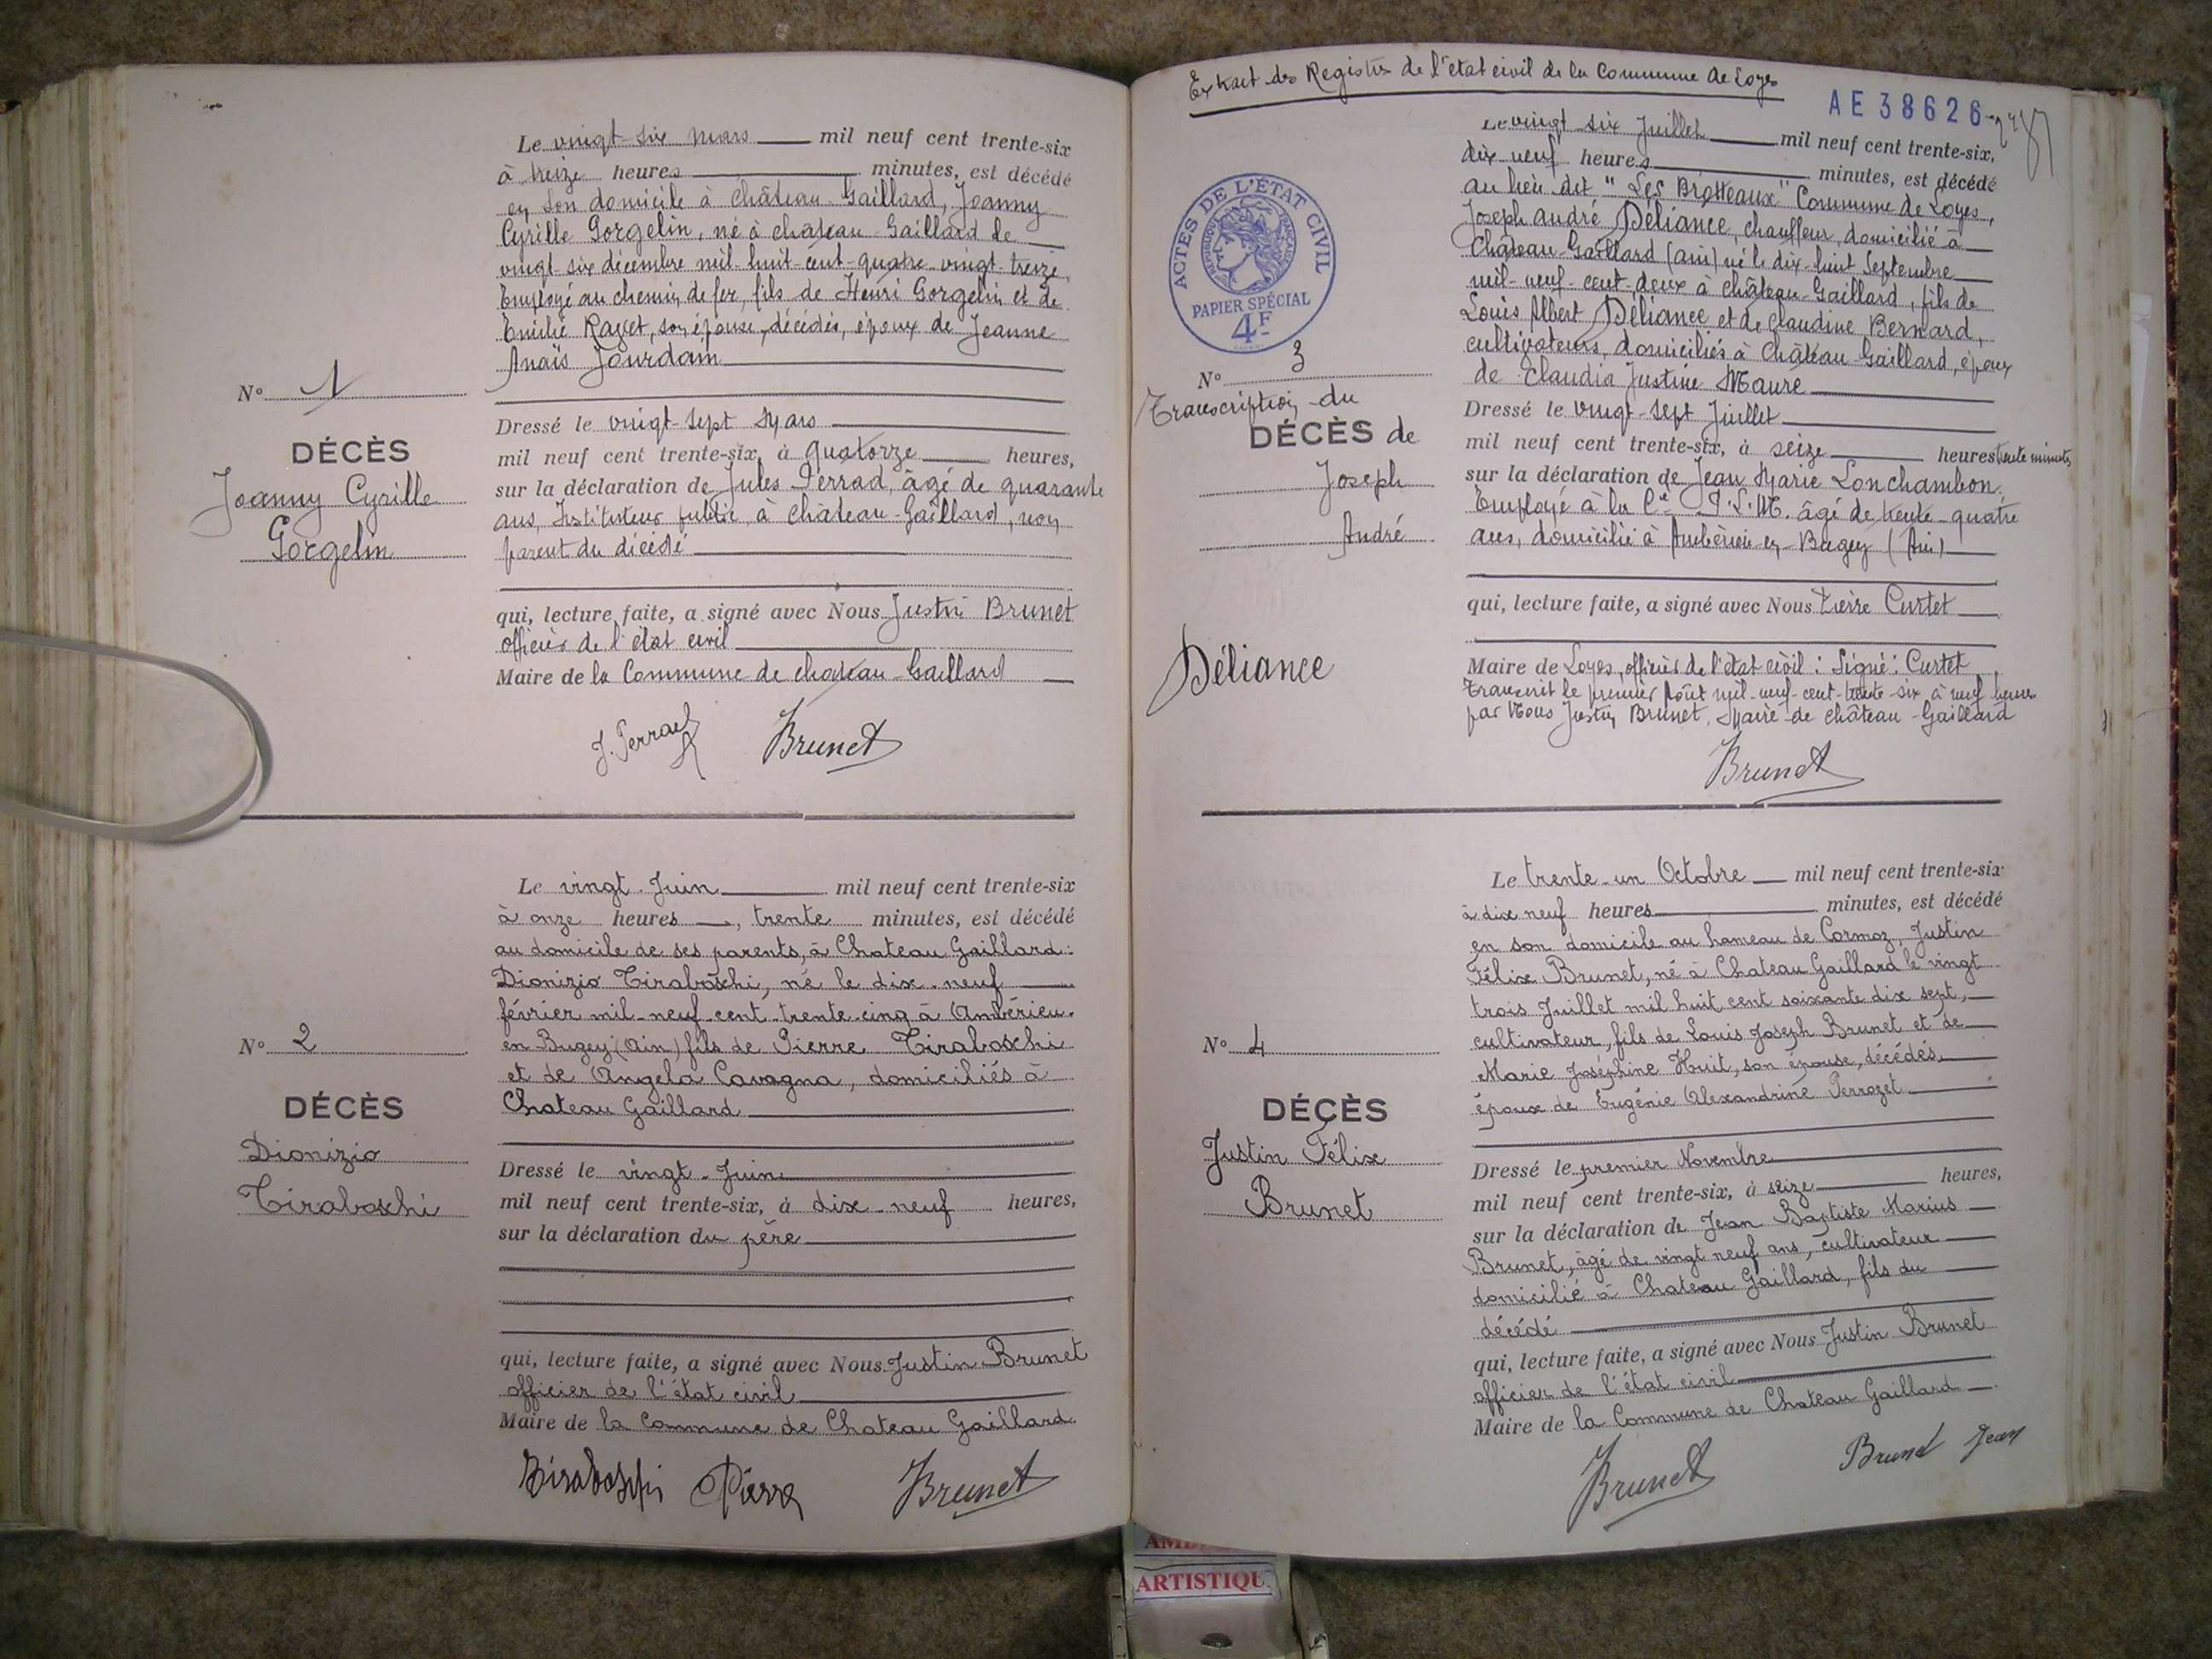 Le vingt-six mars mil neuf cent trente-six
à treize heures minutes, est décédé
en son domicile à Château-Gaillard, Joanny
Cyrille Gorgelin, né à château-Gaillard le
vingt-six décembre mil-huit-cent-quatre-vingt-treize,
Employé au chemin de fer, fils de Henri Gorgelin et de
Emilie Razet, son épouse, décédés, époux de Jeanne
Anaïs Jourdain
N° 1
DÉCÈS
Joanny Cyrille
Gorgelin
Dressé le vingt-sept Mars
mil neuf cent trente-six, à quatorze heures,
sur la déclaration de Jules Perrad, âgé de quarante
ans, Instituteur public, à Château-Gaillard, non
parent du décédé
qui, lecture faite, a signé avec Nous Justin Brunet
officier de l'état civil
Maire de la Commune de château-Gaillard
J. Perrad Brunet
Le vingt Juin mil neuf cent trente-six
à onze heures, trente minutes, est décédé
au domicile de ses parents, à Chateau Gaillard:
Dionizio Tiraboschi, né le dix-neuf
février mil-neuf-cent-trente-cinq à Ambérieu-
en Bugey (Ain) fils de Pierre Tiraboschi
et de Angela Cavagna, domiciliés à
Chateau Gaillard
N° 2
DÉCÈS
Dionizio
Tiraboschi
Dressé le vingt-Juin
mil neuf cent trente-six, à dix-neuf heures,
sur la déclaration du père
qui, lecture faite, a signé avec Nous Justin Brunet
officier de l'état civil
Maire de la Commune de Chateau Gaillard
Tiraboschi Pierre Brunet
Extrait des Registres de l'état civil de la Commune de Loyes
AE38626
ACTES DE L'ÉTAT CIVIL
RÉPUBLIQUE FRANÇAISE
PAPIER SPÉCIAL
4F
Le vingt six Juillet mil neuf cent trente-six,
dix-neuf heures minutes, est décédé
au lieu dit "Les Brotteaux" Commune de Loyes,
Joseph André Déliance, chauffeur, domicilié à
Château-Gaillard (Ain) né le dix-huit Septembre
mil-neuf-cent-deux à château-Gaillard, fils de
Louis Albert Déliance et de Claudine Bernard,
cultivateurs, domiciliés à Château Gaillard, époux
de Claudia Justine Maure
N° 3
Transcription du
DÉCÈS de
Joseph
André
Déliance
Dressé le vingt-sept Juillet
mil neuf cent trente-six, à seize heures trente minutes
sur la déclaration de Jean Marie Lonchambon,
Employé à la Cie P.L.M. âgé de trente-quatre
ans, domicilié à Ambérieu-en-Bugey (Ain)
qui, lecture faite, a signé avec Nous Pierre Curtet
Maire de Loyes, officier de l'état civil: Signé: Curtet
Transcrit le premier Août mil-neuf-cent-trente-six, à neuf heures
par Nous Justin Brunet, Maire de Château-Gaillard
Brunet
Le trente-un Octobre mil neuf cent trente-six
à dix neuf heures minutes, est décédé
en son domicile au hameau de Cormoz, Justin
Félix Brunet, né à Chateau Gaillard le vingt
trois Juillet mil huit cent soixante dix sept,
cultivateur, fils de Louis Joseph Brunet et de
Marie Joséphine Huit, son épouse, décédés,
époux de Eugénie Alexandrine Perrozet
N° 4
DÉCÈS
Justin Félix
Brunet
Dressé le premier Novembre
mil neuf cent trente-six, à seize heures,
sur la déclaration de Jean Baptiste Marius
Brunet, âgé de vingt neuf ans, cultivateur
domicilié à Chateau Gaillard, fils du
décédé
qui, lecture faite, a signé avec Nous Justin Brunet
officier de l'état civil
Maire de la Commune de Chateau Gaillard
Brunet Brunet Jean
ARTISTIQU